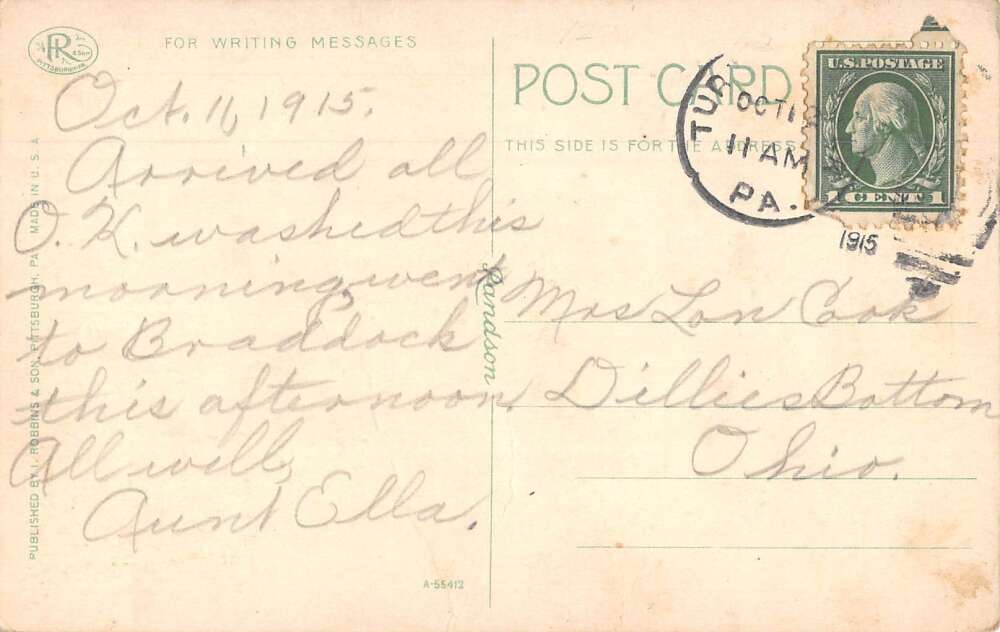 PR & Son
PITTSBURGH, PA.
FOR WRITING MESSAGES
Oct. 11, 1915.
Arrived all
O.K. washed this
morning, went
to Braddock
this afternoon.
All well,
Aunt Ella.
PUBLISHED BY I. ROBBINS & SON, PITTSBURGH, PA. MADE IN U.S.A
A-55412
Randson
POST CARD
THIS SIDE IS FOR THE ADDRESS
TUR
OCT 12
11 AM
PA.
1915
U.S. POSTAGE
1 CENT 1
Mrs Lon Cook
Dillies Bottom
Ohio.